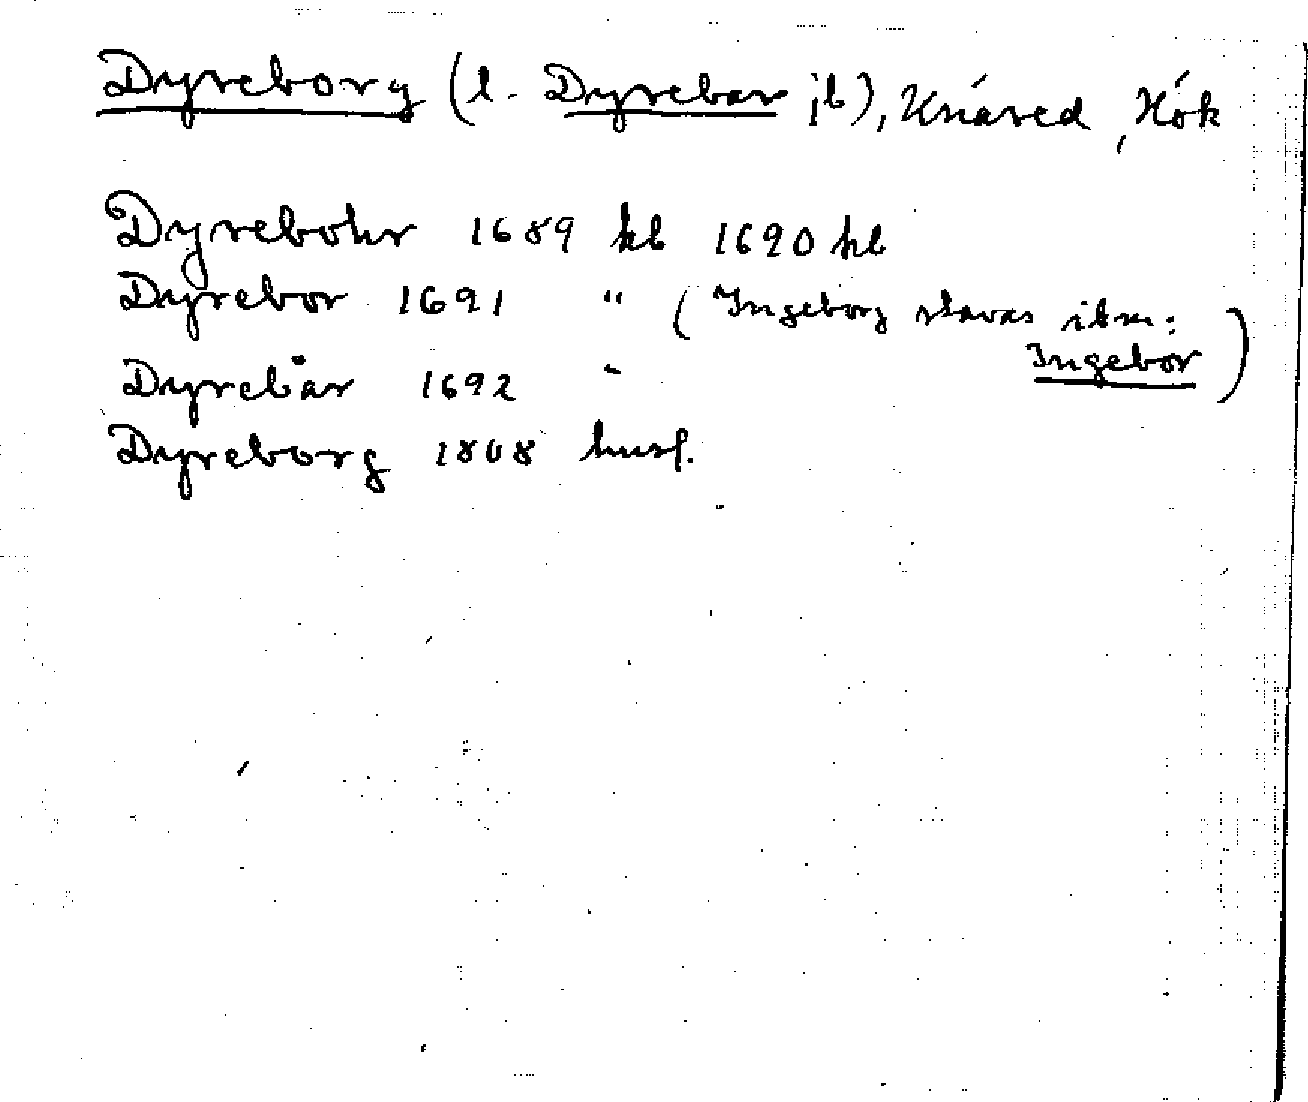 Dyreborg (l. Dyrebar jb), Knäred, Hök
Dyrebohr 1689 kb 1690 kb
Dyrebor 1691 " (Ingeborg stavas ibm:
Ingebor)
Dyrebår 1692 "
Dyreborg 1808 husf.